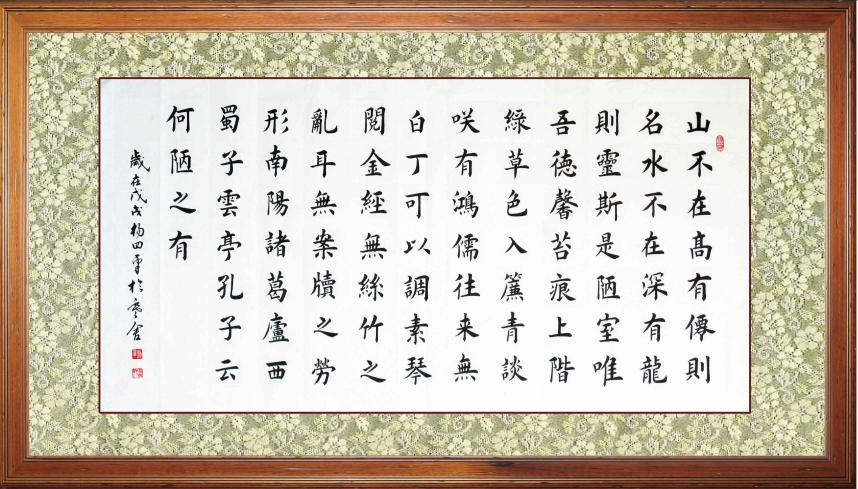 山不在高有僊則
名水不在深有龍
則靈斯是陋室唯
吾德馨苔痕上階
綠草色入簾青談
咲有鴻儒往来無
白丁可以調素琴
閱金經無絲竹之
亂耳無案牘之勞
形南陽諸葛廬西
蜀子雲亭孔子云
何陋之有
歲在戊戌楊四於舍